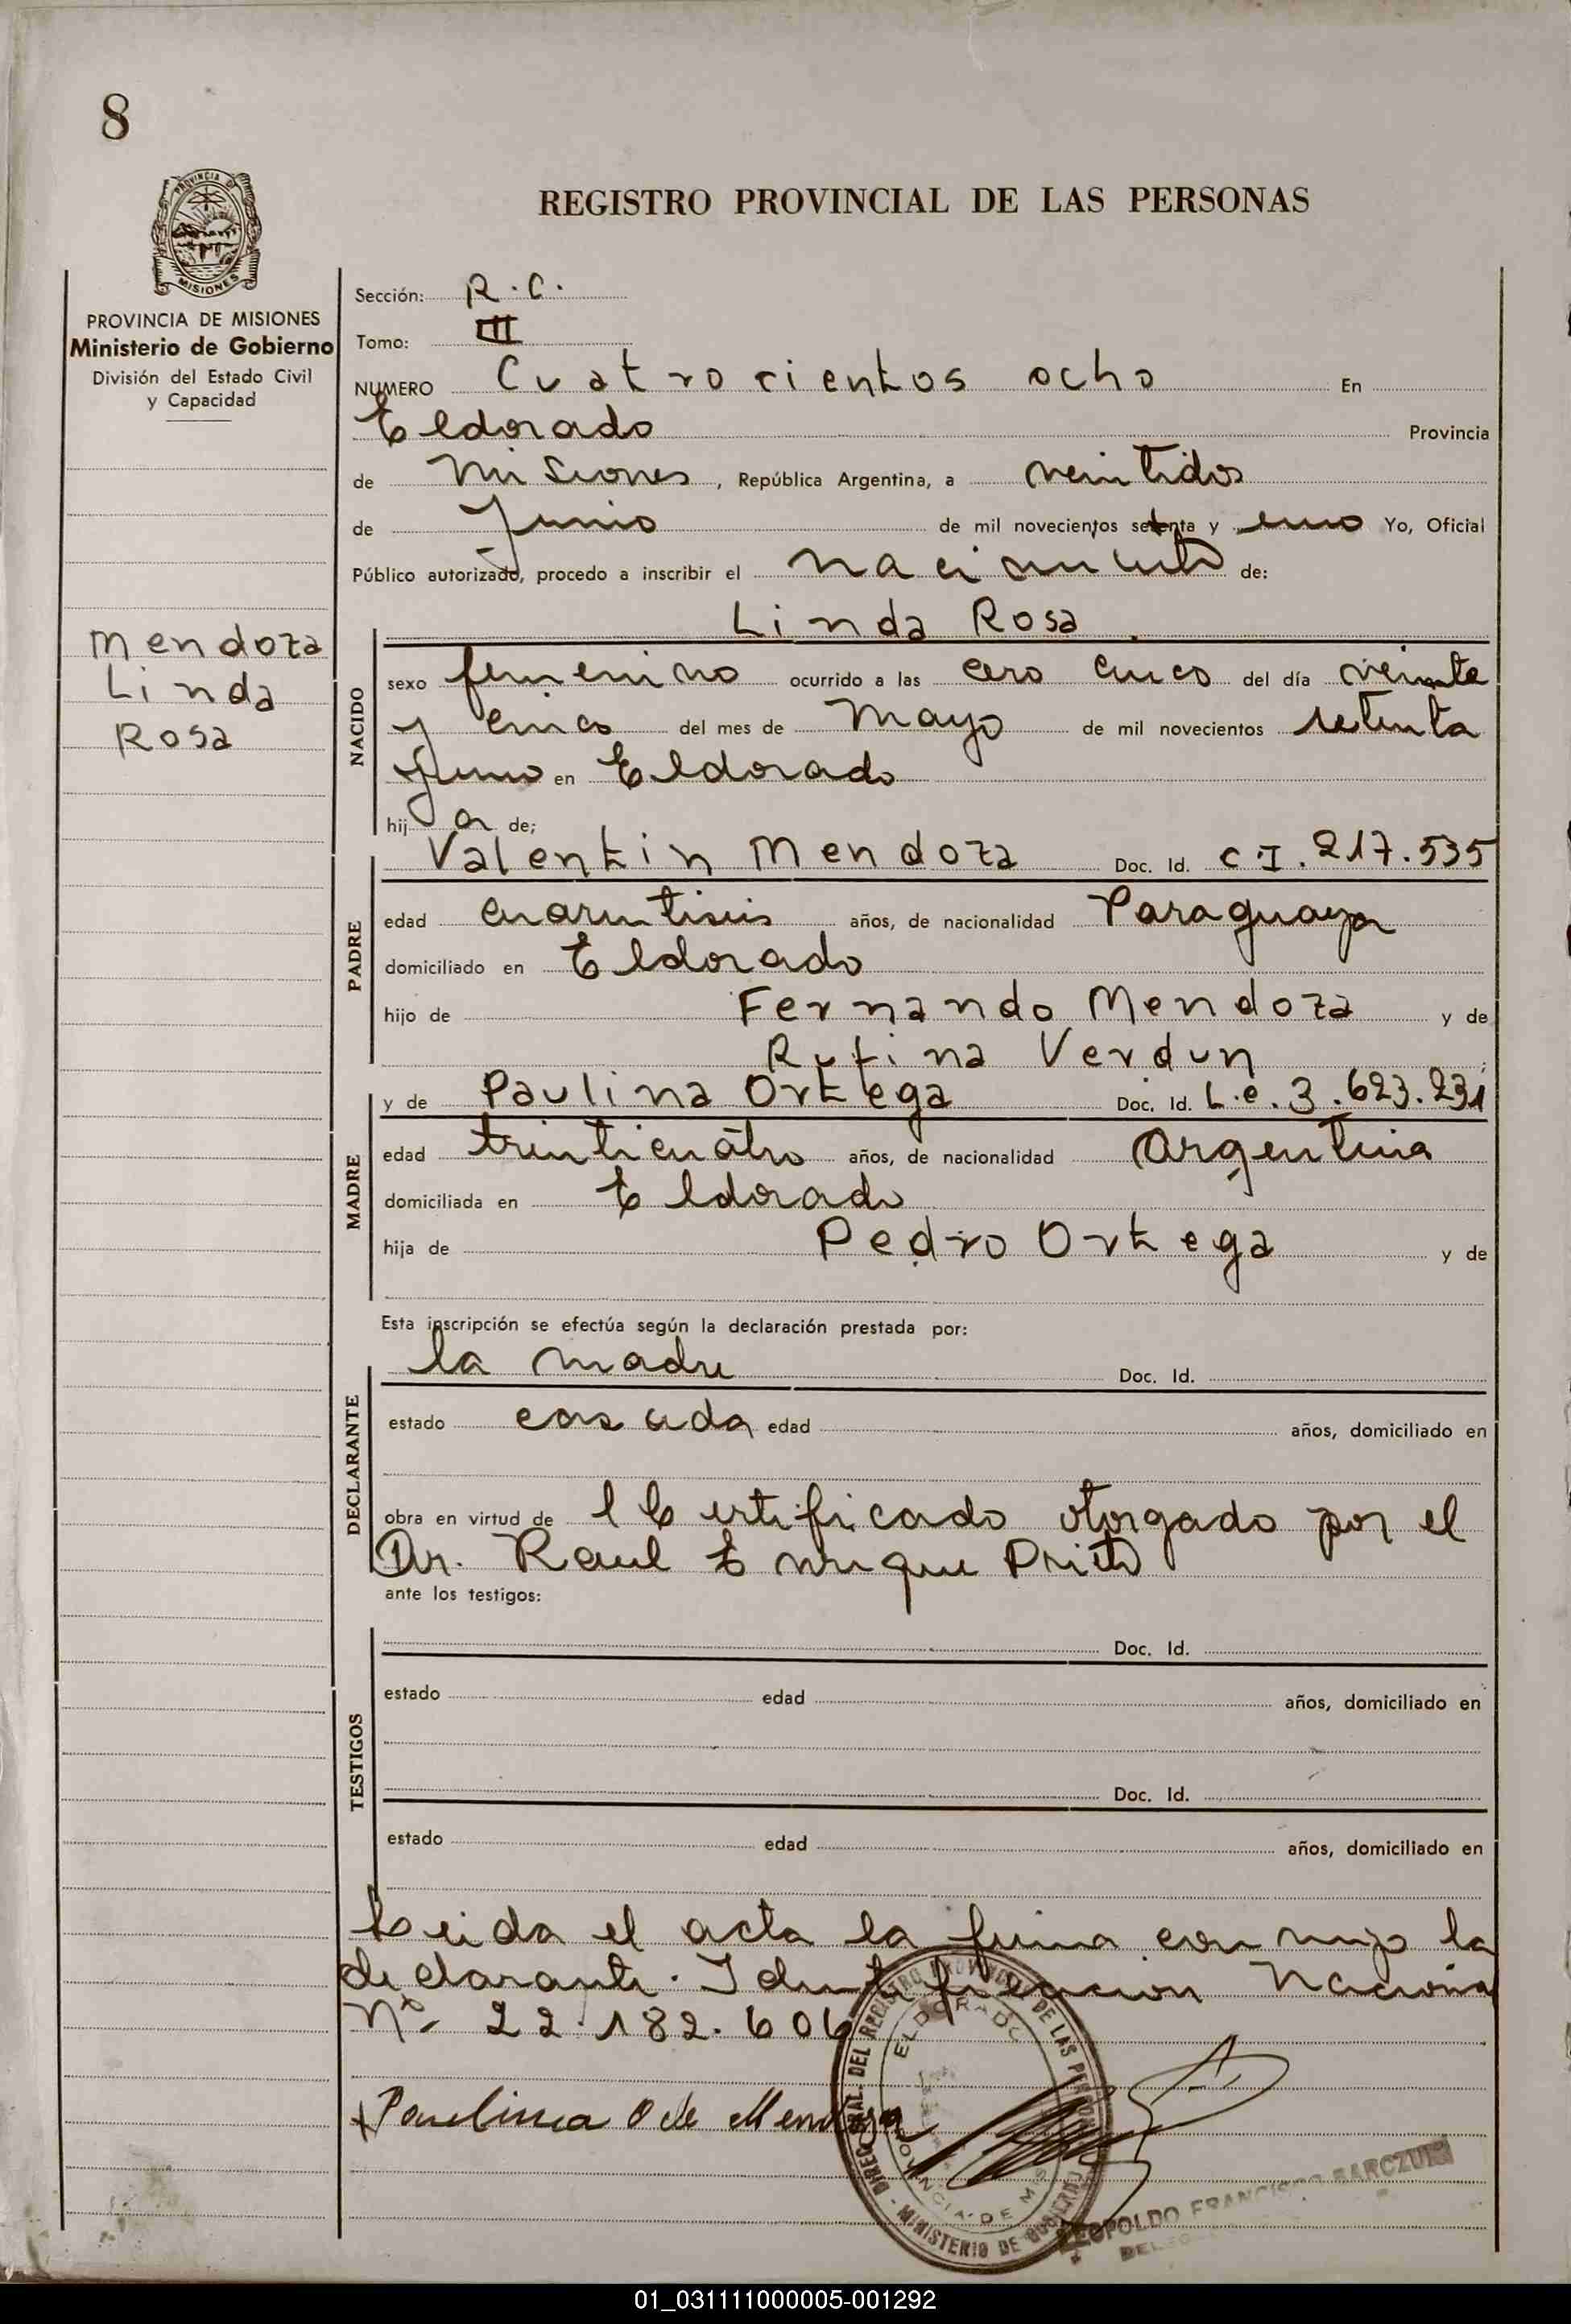 8
PROVINCIA DE
MISIONES
REGISTRO PROVINCIAL DE LAS PERSONAS
PROVINCIA DE MISIONES
Ministerio de Gobierno
División del Estado Civil
y Capacidad
Mendoza
Linda
Rosa
Sección: R.C.
Tomo: III
NUMERO Cuatrocientos ocho En
Eldorado Provincia
de Misiones, República Argentina, a veintidos
de Junio de mil novecientos setenta y uno Yo, Oficial
Público autorizado, procedo a inscribir el nacimiento de:
Linda Rosa
NACIDO
sexo femenino ocurrido a las cero cinco del día veinte
y cinco del mes de Mayo de mil novecientos setenta
y uno en Eldorado
hij a de;
PADRE
Valentin Mendoza Doc. Id. C.I. 217.535
edad cuarentiseis años, de nacionalidad Paraguaya
domiciliado en Eldorado
hijo de Fernando Mendoza y de
Rufina Verdun
MADRE
y de Paulina Ortega Doc. Id. L.e. 3.623.231
edad treinticuatro años, de nacionalidad Argentina
domiciliada en Eldorado
hija de Pedro Ortega y de
Esta inscripción se efectúa según la declaración prestada por:
DECLARANTE
la madre Doc. Id.
estado casada edad años, domiciliado en
obra en virtud de l Certificado otorgado por el
Dr. Raul Enrique Prieto
ante los testigos:
TESTIGOS
Doc. Id.
estado edad años, domiciliado en
Doc. Id.
estado edad años, domiciliado en
Leida el acta la firma conmigo la
declarante. Identificacion Naciona
Nº 22.182.606
Paulina O de Mendoza
DEL REGISTRO PROVINCIAL DE LAS PERSONAS
ELDORADO
PROVINCIA DE MS
MINISTERIO DE GOBIERNO
LEOPOLDO FRANCISCO BARCZUK
01_031111000005-001292